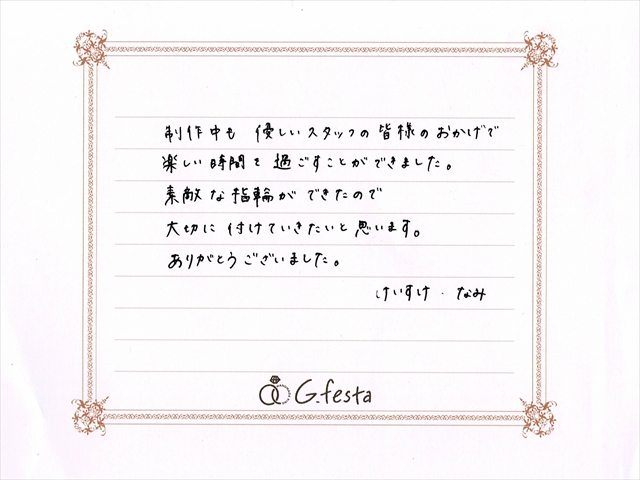 制作中も 優しいスタッフの皆様のおかげで
楽しい時間を過ごすことができました。
素敵な指輪ができたので
大切に付けていきたいと思います。
ありがとうございました。
けいすけ・なみ
G.festa